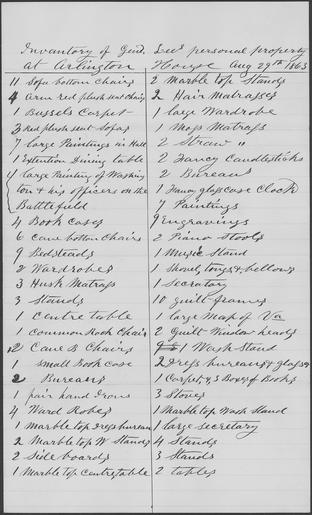 Inventory of Genl. Lees personal property
at Arlington House Aug 29th 1863
11 Sofa bottom Chairs
4 Arm red plush seat Chairs
1 Brussels Carpet
3 Red plush seat Sofas
7 large Paintings in Hall
1 Extention Dining table
1 large Painting of Washing
ton & his officers on the
Battlefield
4 Book cases
6 Cane bottom Chairs
9 Bedsteads
2 Wardrobes
3 Husk Matrass
3 Stands
1 Centre table
1 Common Rock Chair
2 Cane B Chairs
1 small Book case
2 Bureaus
1 pair hand Irons
4 Ward Robes
1 Marble top Dress bureau
2 Marble top W Stands
2 Side boards
1 Marble top Centre table
2 Marble top Stands
2 Hair Matrasses
1 large Wardrobe
1 Moss Matrass
2 Straw "
2 Fancy Candlesticks
2 Bureaus
1 Fancy glass case Clock
7 Paintings
9 Engravings
2 Piano Stools
1 Music Stand
1 Shovel, tongs & bellows
1 Secretary
10 guilt frames
1 large Map of Va
2 Guilt Window heads
1 Wash Stand
2 Dress bureaus & glasses
1 Carpet, & 3 Boxes of Books
3 Stoves
1 Marble top Wash Stand
1 large Secretary
4 Stands
3 Stands
2 tables